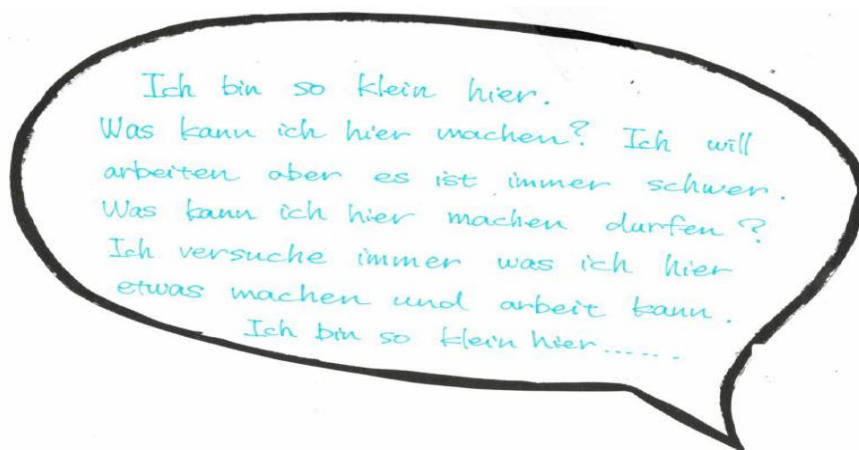 Ich bin so klein hier.
Was kann ich hier machen? Ich will
arbeiten aber es ist immer schwer.
Was kann ich hier machen durfen?
Ich versuche immer was ich hier
etwas machen und arbeit kann.
Ich bin so klein hier......